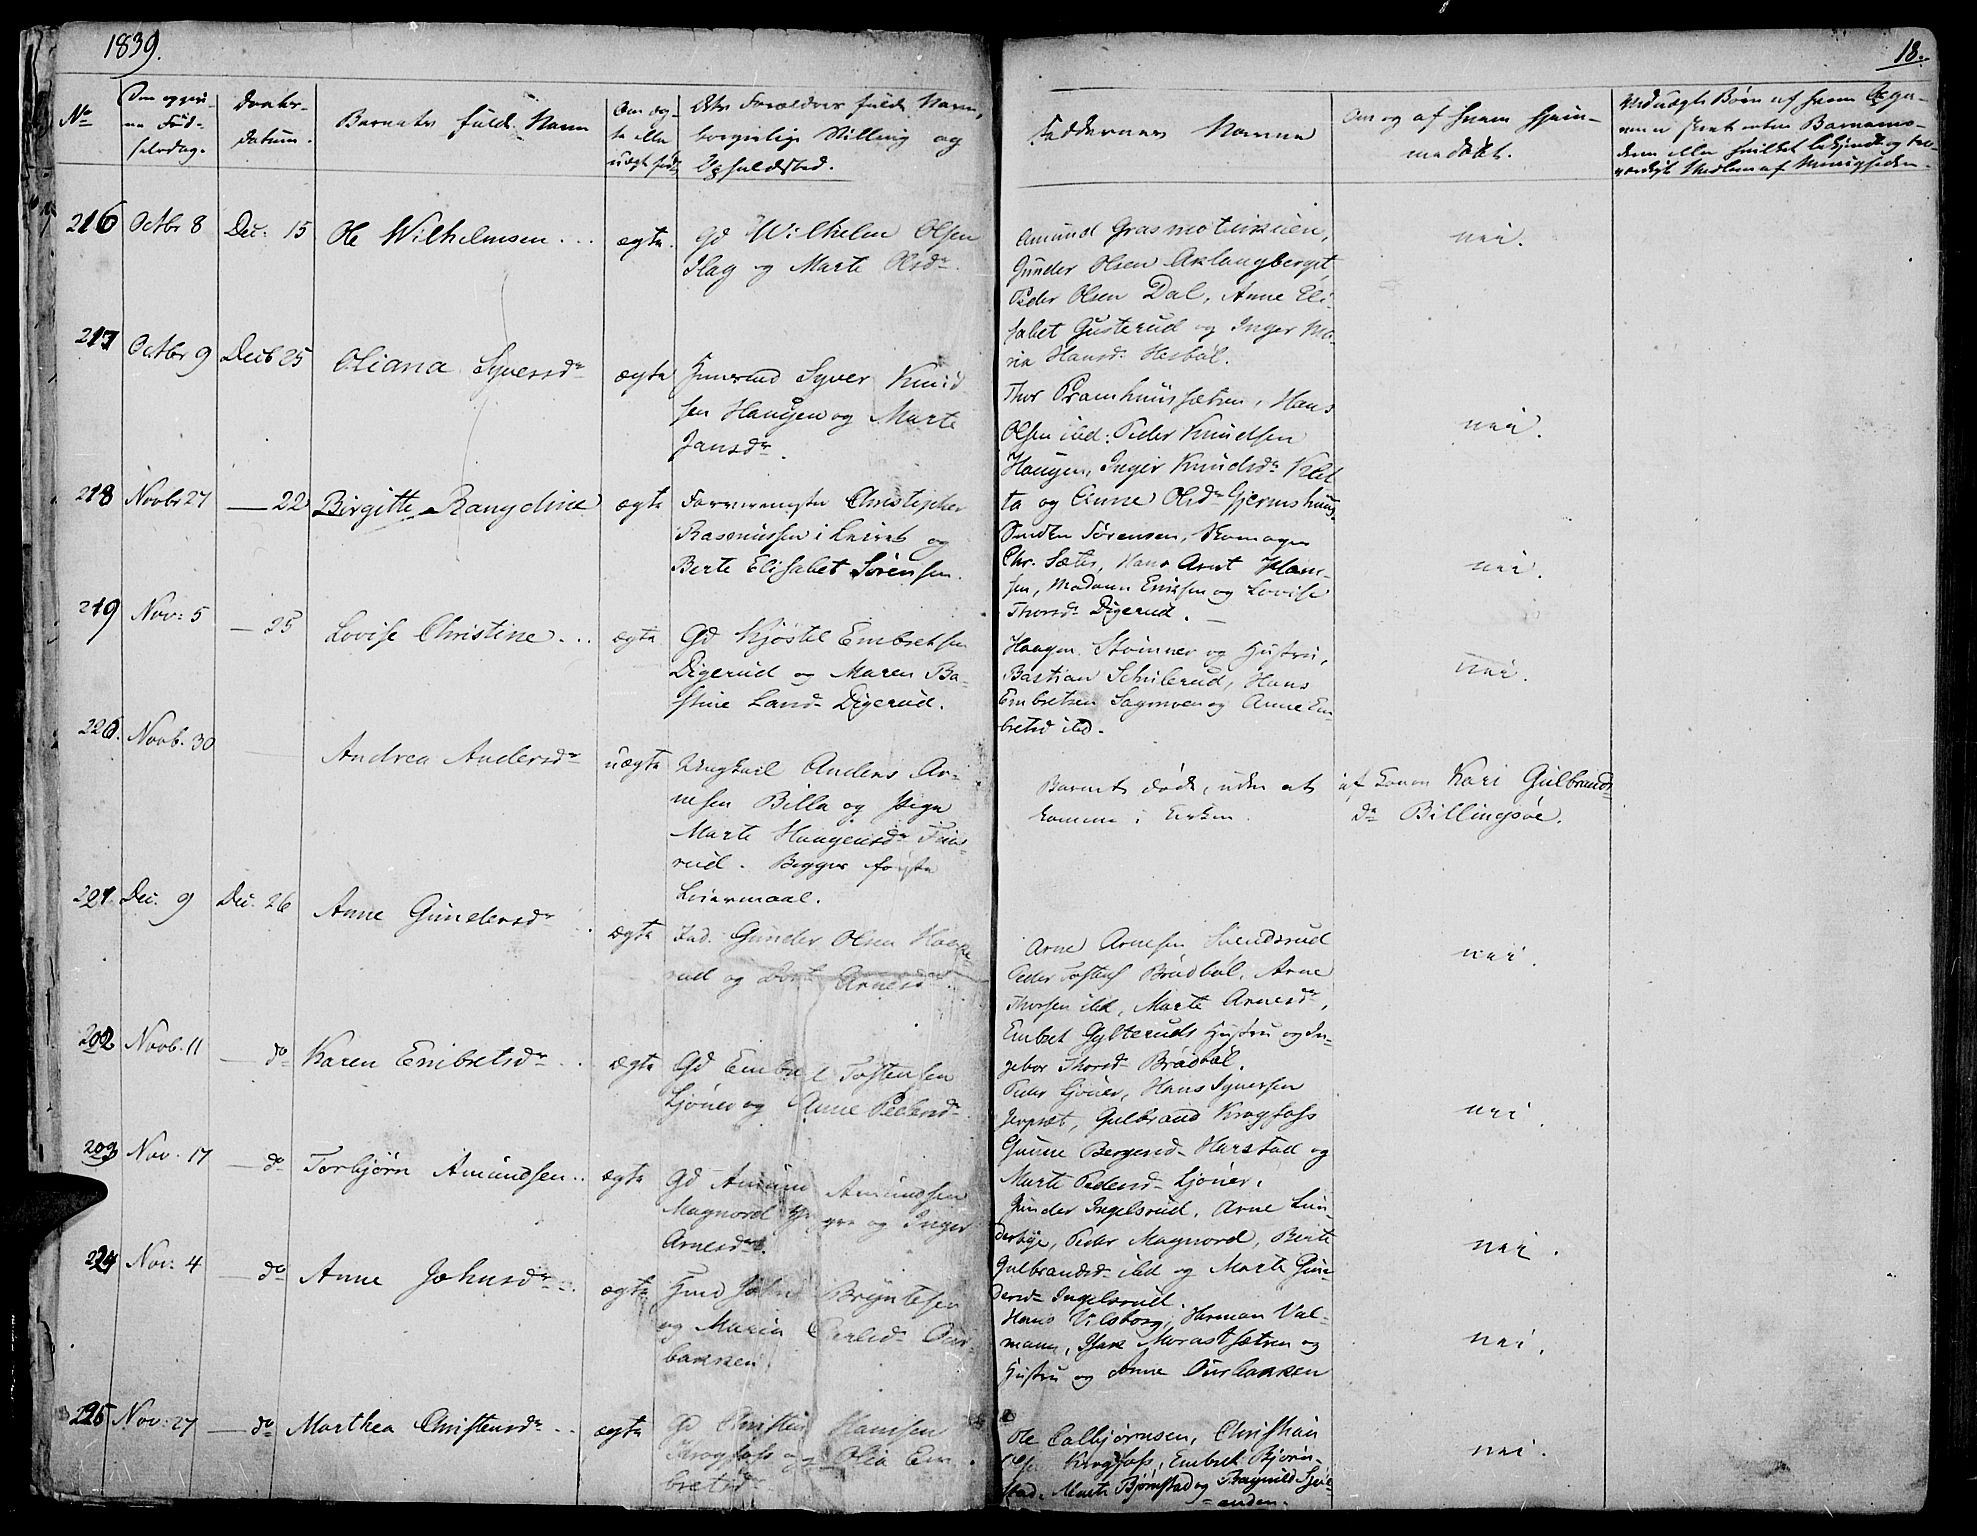 1839.
18.
No
Den egne
Fød-
selsdag.
Daabs-
datum.
Barnets fulde Navn
Om æg-
te eller
uægte født
Forældres fulde Navn,
borgerlige Stilling og
Opholdsted.
Faddernes Navne
Om og af hvem hjem-
medøbt.
216 Octbr 8 Dec. 15 Ole Wilhelmsen. ægte. Gd Wilhelm Olsen
og Marte Olsdr.
Amund
Gunder Olsen Aklangberget
Peder Olsen Dal, Anne Eli-
sabet Gusterud og Inger Ma-
ria Hansd. Hesbøl.
nei.
217 Octbr 9 Decb 25 Oliana Syversdr ægte Huusmd Syver Knud
sen Haugen og Marte
Jansdr.
Thor Pramhuussætren, Hans
Olsen ibd. Peder Knudsen
Haugen, Inger Knudsdr Klet
ta og Anne Olsdr Gjermshuus
nei.
218 Novbr 27 — 22 Birgitte Rangdine ægte Christopher
Rasmussen i Leiret og
Berte Elisabet Sørensen.
Sørensen,
Chr. Sæter, Hans Arnt Han-
sen, Madame Eriksen og Lovise
Thorsdr Digerud.
nei.
219 Nov: 5 — 25 Lovise Christine ægte Gd Kjøstel Embretsen
Digerud og Maren Ba-
stine Land Digerud.
Haagen Stømner og Hustru,
Bastian Schulerud, Hans
Embretsen Sagmoen og Anne Em-
bretsd ibd.
nei.
220. Novb. 30 Andrea Andersdr uægte Ungkarl Anders Ar-
nesen Billa og Pige
Marte Haagensdr
rud. Begges første
Leiermaal.
Barnet døde, uden at
komme i Kirken.
af Konen Kari Gulbrands
dr Billingsøe.
221. Dec. 9 Dec. 26 Anne Gundersdr ægte Gunder Olsen
rud og Arnesdr.
Arne Arnesen Svendsrud
Peder Tostens Brødbøl, Arne
Thorsen ibd, Marte Arnesdr,
Embret Gylteruds Hustru og In-
gebor Thorsd Brødbøl.
nei.
202 Novb. 11 — do Karen Embretsdr ægte Gd Embret Tostensen
Ljøner og Anne Pedersd
Peder Ljøner, Hans Syversen
Jerpset, Gulbrand Krogfoss
Gunne Bergersd Harstad og
Marte Pedersd Ljøner.
nei.
203 Nov. 17 — do Torbjørn Amundsen ægte Gd Amund Amundsen
Magnord og Inger
Arnesdr.
Gunder Ingelsrud, Arne Lun-
derbye, Peder Magnord, Berte
Gulbrandsd ibd og Marte Gun-
dersd Ingelsrud.
nei.
224 Nov: 4 — do Anne Johnsdr ægte Hmd John Bryntesen
og Maria Carlsd Our-
bakken.
Hans Vilsborg, Herman Val-
mann, Isak Morastsætren og
Hustru og Anne Ourbakken
nei.
225 Nov: 27 — do Marthea Christensdr ægte Gd Christen Hansen
Krogfoss og Olia Em-
bretsdr
Ole Colbjørnsen, Christian
Krogfoss, Embret Bjørn-
stad, Marte Bjørnstad og Ragnild
anden.
nei.